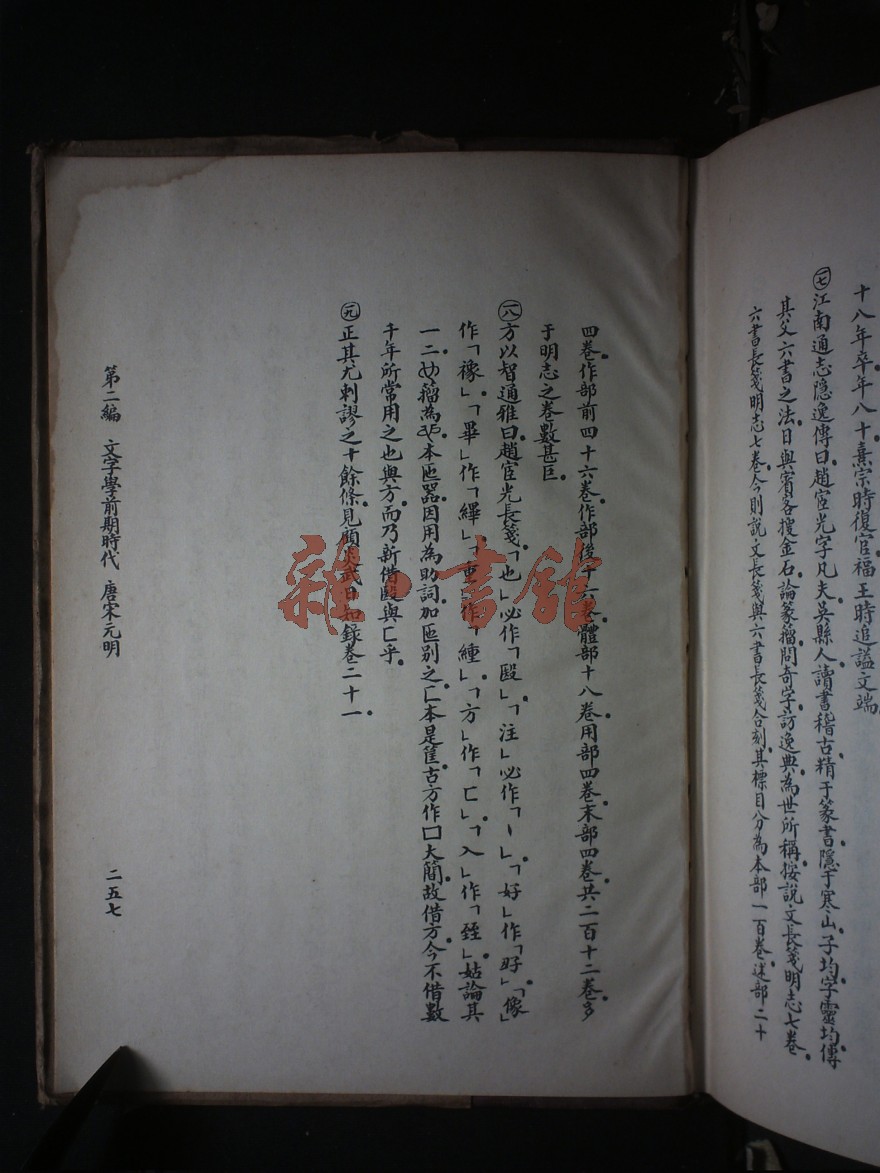 十八年卒年八十熹宗時復官福王時追謚文端
㊆江南通志隱逸傳曰趙宧光字凡夫吳縣人讀書稽古精于篆書隱于寒山子均字靈均傳
其父六書之法日與賓客搜金石論篆籀問奇字訪逸典為世所稱按說文長箋明志七卷
六書長箋明志七卷今則說文長箋與六書長箋合刻其標目分為本部一百卷述部二十
四卷作部前四十六卷作部後十六卷體部十八卷用部四卷末部四卷共二百十二卷多
于明志之卷數甚巨
㊀八方以智通雅曰趙宧光長箋「也」必作「殹」「注」必作「丶」「好」作「𡚽」「像」
作「襐」「畢」作「縪」「重」作「緟」「方」作「匚」「入」作「臸」姑論其
一二籀為本匜器因用為助詞加匜別之匚本是筐古方作口大簡故借方今不借數
千年所常用之也與方而乃新借殹與匚乎
正其尤剌謬之十餘條見顧炎武日知錄卷二十一
第二編 文字學前期時代 唐宋元明
二五七
雜書館